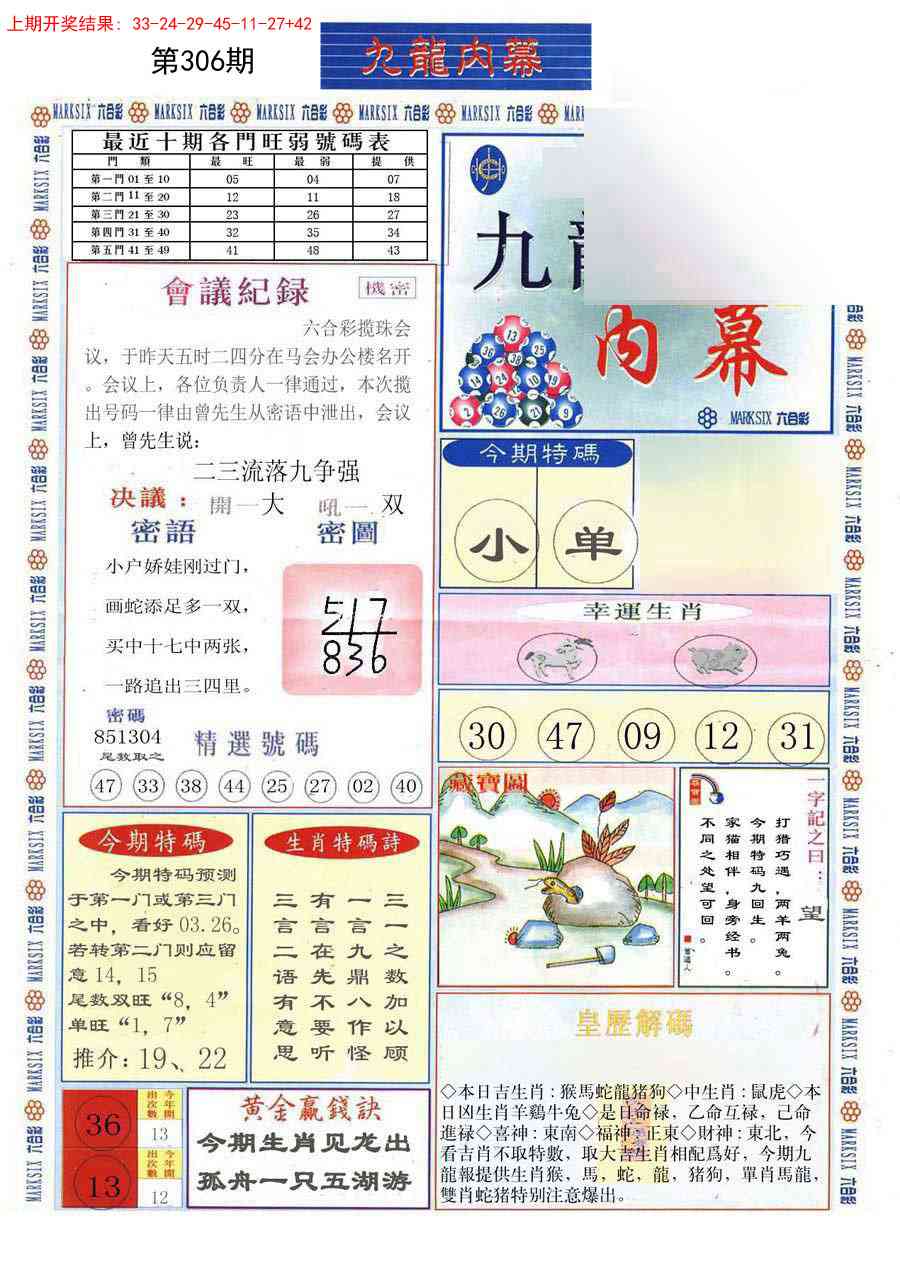 上期开奖结果：33-24-29-45-11-27+42
第306期
九龍内幕
MARKSIX 六合彩
最近十期各門旺弱號碼表
門 類 最 旺 最 弱 提 供
第一門 01 至 10 05 04 07
第二門 11 至 20 12 11 18
第三門 21 至 30 23 26 27
第四門 31 至 40 32 35 34
第五門 41 至 49 41 48 43
會議紀録 機密
六合彩揽珠会
议，于昨天五时二四分在马会办公楼名开
。会议上，各位负责人一律通过，本次揽
出号码一律由曾先生从密语中泄出，会议
上，曾先生说：
二三流落九争强
决議： 開一大 吼一双
密語 密圖
小户娇娃刚过门，
画蛇添足多一双，
买中十七中两张，
一路追出三四里。
517
836
密碼
851304
尾数取之
精選號碼
47 33 38 44 25 27 02 40
九
内幕
13
36 38 25
14 24 10 19
2 26 21 9
MARKSIX 六合彩
今期特碼
小 单
幸運生肖
30 47 09 12 31
藏寶圖
一字記之曰：
望
打猎巧遇，两羊两兔。
今期特码九回生。
家猫相伴，身旁经书。
不同之处望可回。
今期特碼
今期特码预测
于第一门或第三门
之中，看好 03.26。
若转第二门则应留
意 14，15
尾数双旺“8，4”
单旺“1，7”
推介：19、22
生肖特碼詩
三一之数加以顾
一言九鼎八作怪
有在先不要听
三言二语有意思
36
今年開出次數
13
13
今年開出次數
12
黄金贏錢訣
今期生肖见龙出
孤舟一只五湖游
皇歷解碼
◇本日吉生肖：猴馬蛇龍猪狗◇中生肖：鼠虎◇本
日凶生肖羊鷄牛兔◇是日命禄，乙命互禄，己命
進禄◇喜神：東南◇福神：正東◇財神：東北，今
看吉肖不取特數，取大吉生肖相配爲好，今期九
龍報提供生肖猴，馬，蛇，龍，猪狗，單肖馬龍，
雙肖蛇猪特别注意爆出。